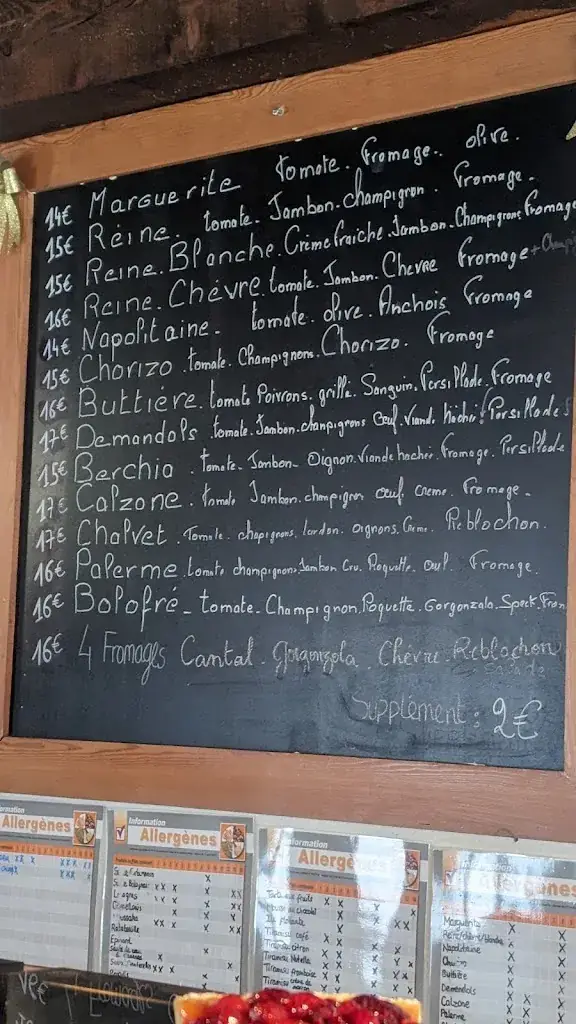 14€ Marguerite tomate. Fromage. olive.
15€ Reine. tomate. Jambon. champignon. Fromage.
15€ Reine. Blanche. Crème fraîche. Jambon. Champignons Fromage
16€ Reine. Chèvre. tomate. Jambon. Chevre Fromage
14€ Napolitaine. tomate. olive. Anchois Fromage
15€ Chorizo. tomate. Champignons. Chorizo. Fromage
16€ Buttiére. tomate Poivrons. grillé. Sanguin. Persillade. Fromage
17€ Demandols tomate. Jambon. champignons Œuf. Viande hachée Persillade
15€ Berchio. tomate. Jambon. Oignon. Viande hachée. Fromage. Persillade
17€ Calzone. tomate Jambon. champignon œuf. Creme. Fromage.
17€ Chalvet. Tomate. chapignons. lardon. oignons. Creme. Reblochon.
16€ Palerme. tomate champignons. Jambon Cru. Roquette. œuf. Fromage.
16€ Bolofré - tomate. Champignon. Roquette. Gorgonzola. Speck.
16€ 4 Fromages Cantal. Gorgonzola. Chèvre. Reblochon
Supplément : 2€
Allergènes
Information
Allergènes
Information
Allergènes
Information
Allergènes
Lasagnes
Ratatouille
Epinard
Tarte aux fruits
Tiramisu café
Tiramisu citron
Tiramisu Nutella
Marguerite
Napolitaine
Chorizo
Buttiére
Demandols
Calzone
Palerme